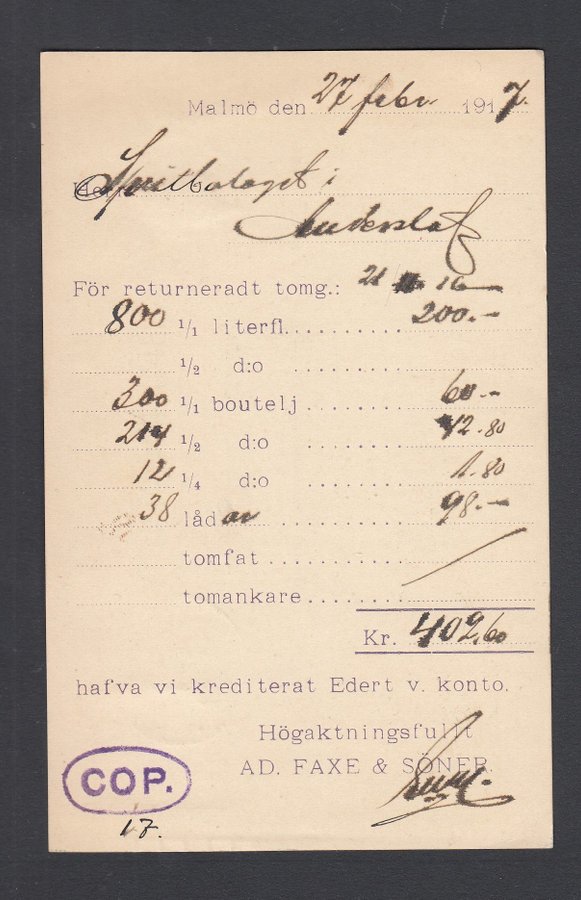 Malmö den 27 febr 1917.
Spritbolaget i
Anderslöf
För returneradt tomg.: 21 16
800 1/1 literfl. 200.-
1/2 d:o
300 1/1 boutelj 60.-
214 1/2 d:o 42.80
12 1/4 d:o 1.80
38 lådor 98.-
tomfat
tomankare
Kr. 402,60
hafva vi krediterat Edert v. konto.
Högaktningsfullt
AD. FAXE & SÖNER.
COP.
17.